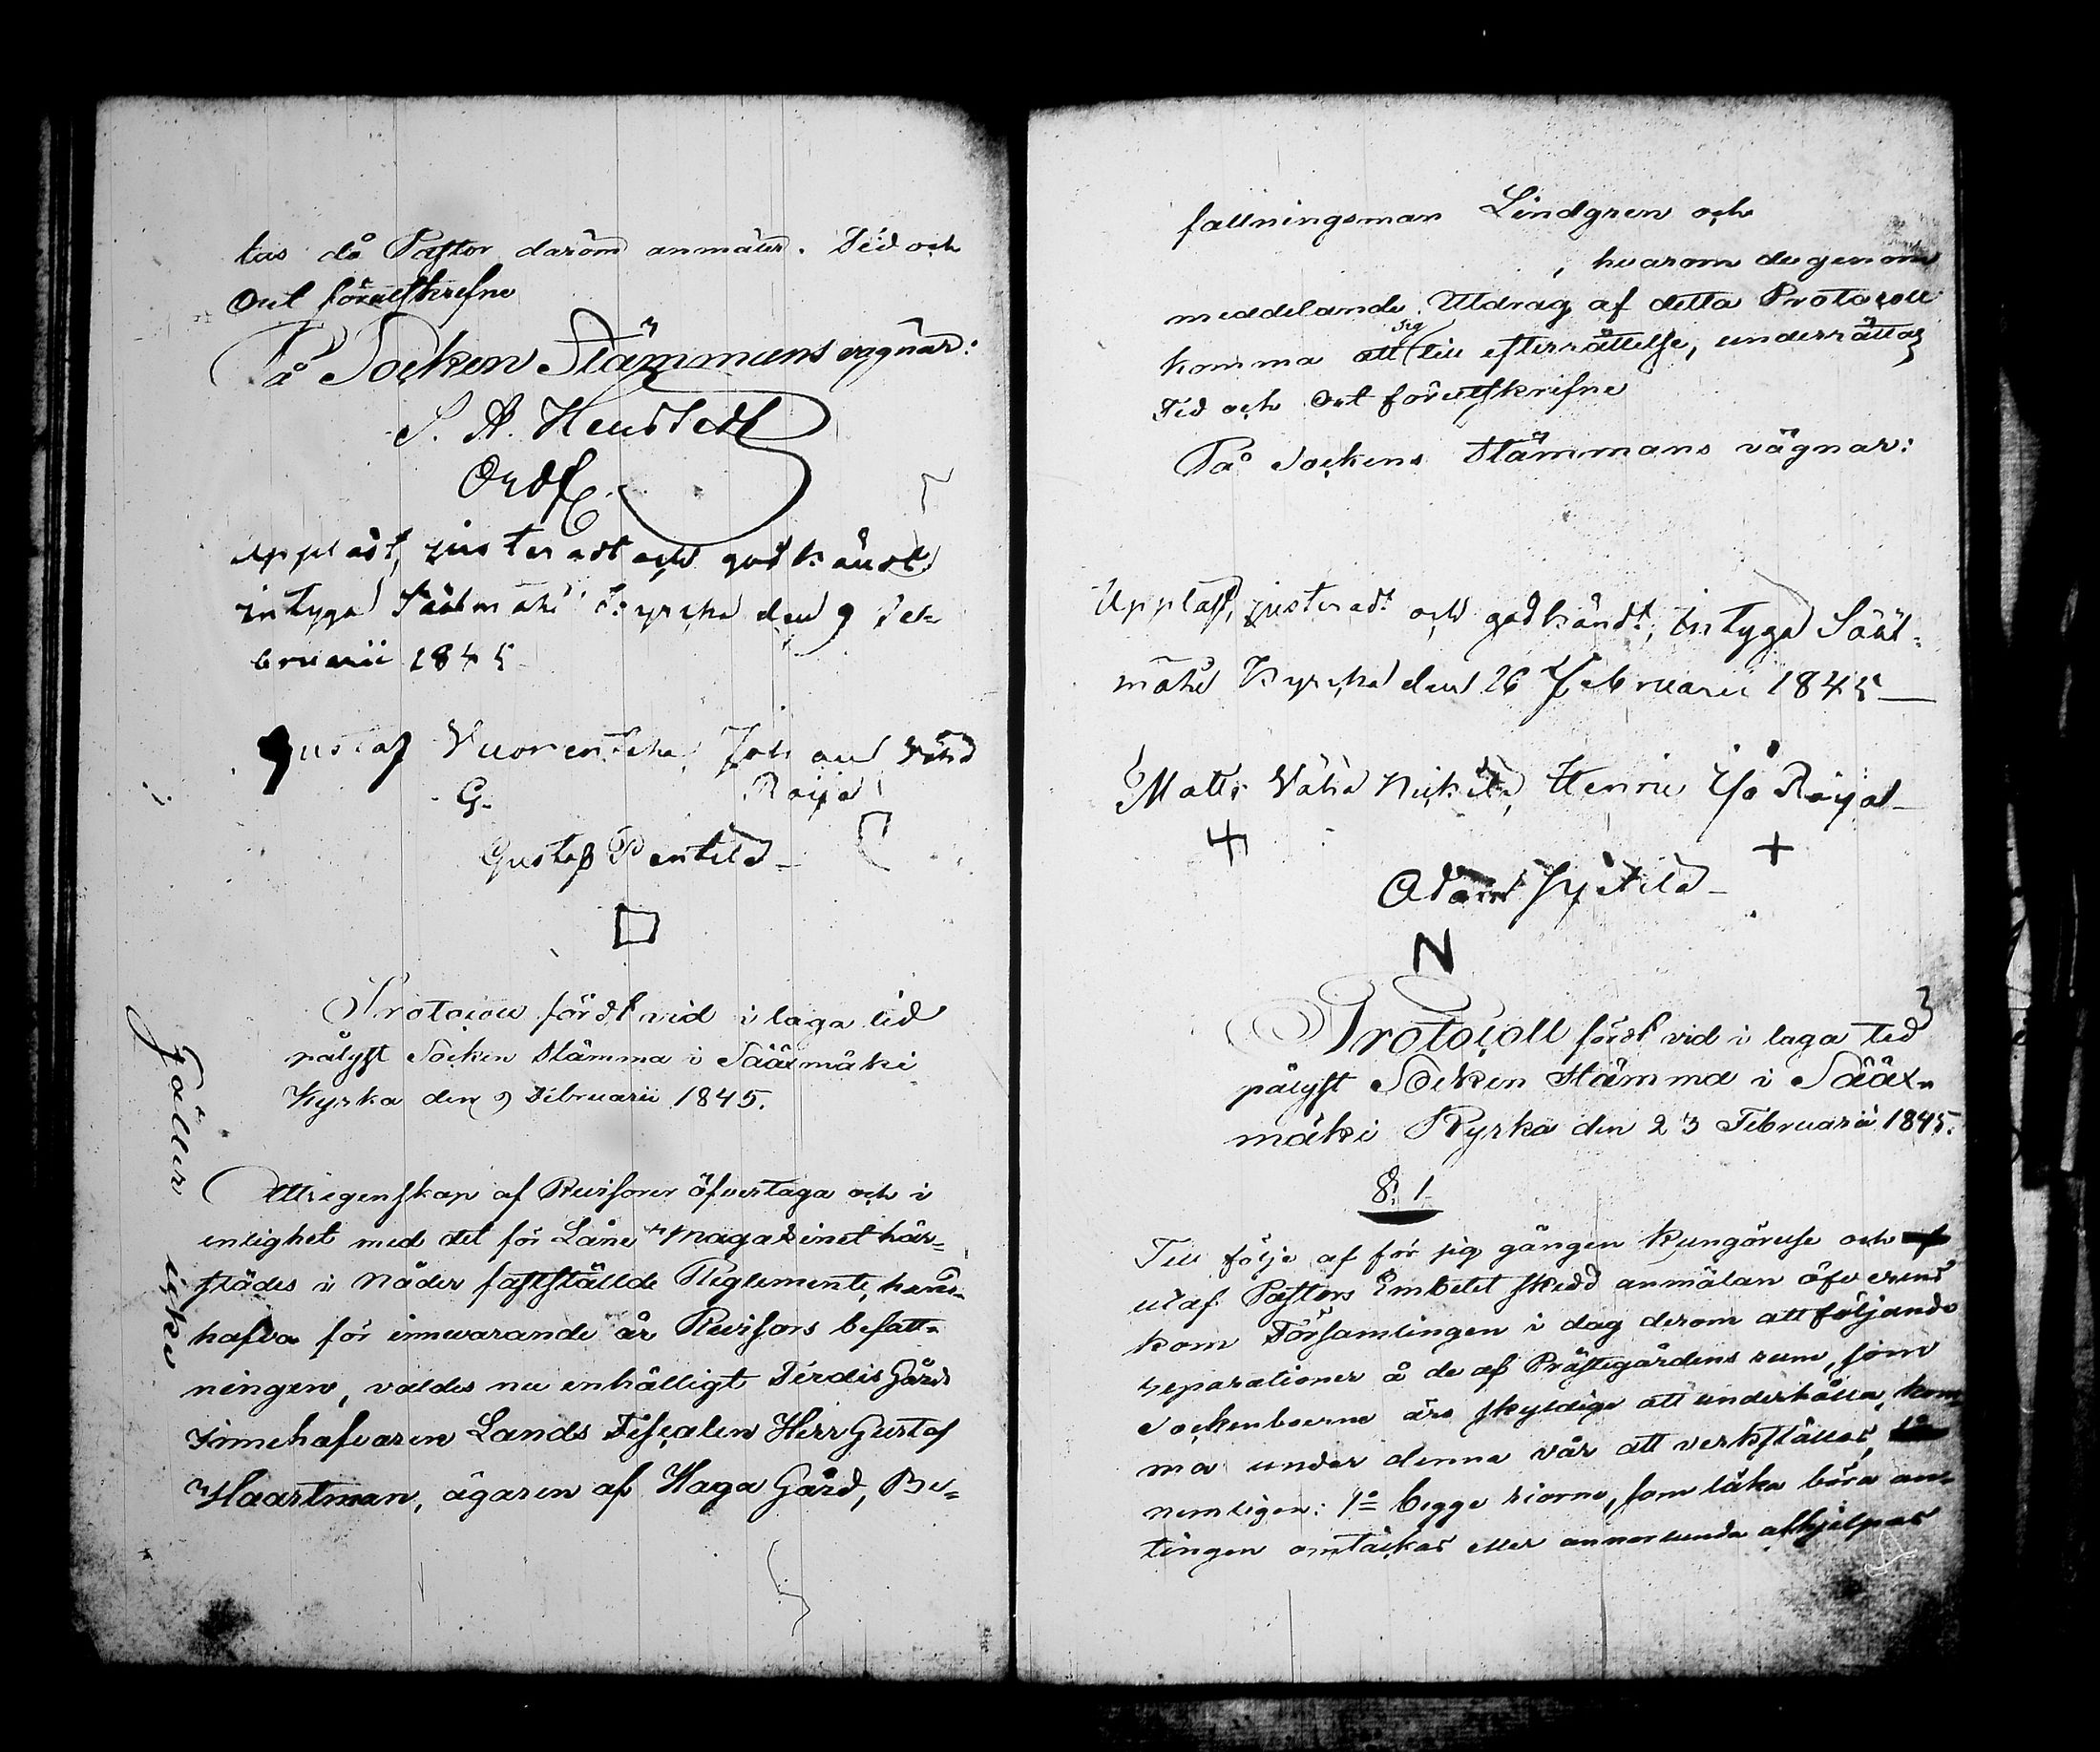 tas då Pastor darom anmäler. Tid och
Ort förutskrefne
På Socken Stämmans vägnar:
Ordf.
Uppläst, justeradt och godkändt
intyga Sääxmäki Kyrcka den 9 Feb
bruarii 1845
Gustaf Vuorentaka, Johan Vähä
G. Roija
Gustaf Pentilä
Protocoll fördt vid i laga tid
pålyst Socken Stämma i Sääxmäki
Kyrka den 9 Februarii 1845.
Gäller icke
Att i egenskap af Revisorer öfvertaga och i
enlighet med det för Låne Magazinet här-
städes i Nåder fastställde Reglemente, hand-
hafva för innevarande år Revisors befatt-
ningen, valdes nu enhälligt Gårds
Innehafvaren Lands Fiscalen Herr Gustaf
Haartman, ägaren af Haga Gård, Be-
fallningsman Lindgren och
, hvarom de genom
meddelande Utdrag af detta Protocoll
komma att sig till efterrättelse, underrättas
Tid och Ort förutskrifne
På Sockens Stämmans vägnar:
Uppläst, justeradt och godkändt, intyga Sääx-
mäki Kyrcka den 26 Februarii 1845
Matts Vähä Nickilä, Henric Iso Roija
Adam Jystilä
N
Protocoll fördt vid i laga tid
pålyst Socken Stämma i Sääx-
mäki Kyrka den 23 Februarii 1845.
§. 1
Till följe af för sig gången kungörelse och
utaf Pastors Embetet skedd anmälan öfverens
kom Församlingen i dag derom att följande
reparationer å de af Prästegårdens rum, som
Sockenboerne äro skyldige att underhålla, kom-
ma under denna vår att verkställas,
nemligen: 1º begge riorne, som läka böra an-
tingen omtäckas eller annorlunda afhjelpas